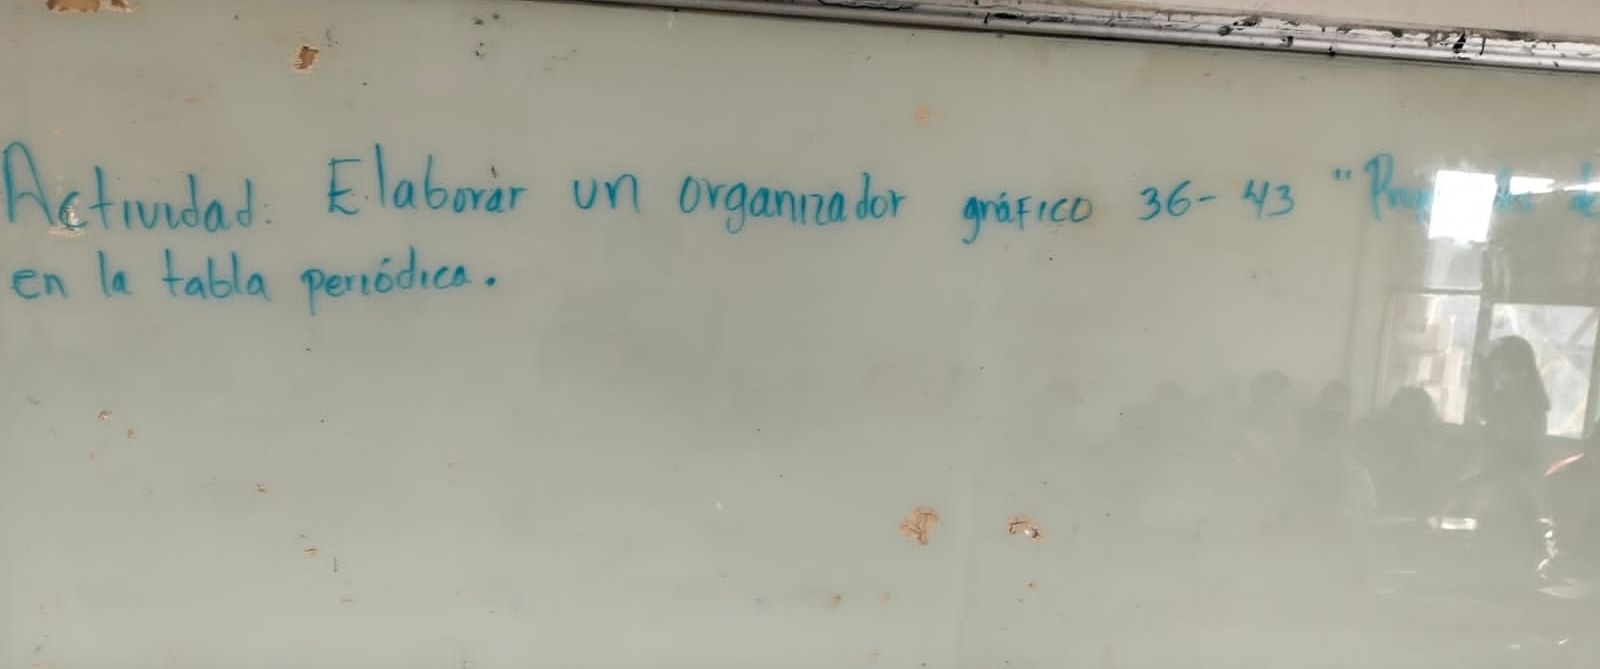 Actividad: Elaborar un organizador gráfico 36-43 "
en la tabla periódica.